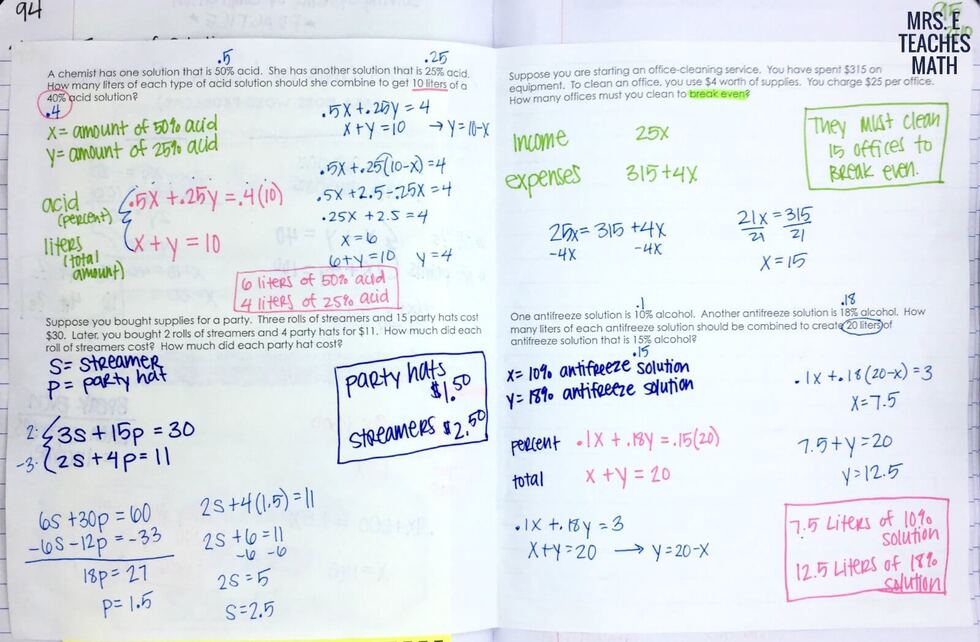 94
95
MRS. E
TEACHES
MATH
.5
.25
A chemist has one solution that is 50% acid. She has another solution that is 25% acid.
How many liters of each type of acid solution should she combine to get 10 liters of a
40% acid solution?
.4
X = amount of 50% acid
Y = amount of 25% acid
acid
(percent)
.5X + .25Y = .4(10)
liters
(total
amount)
X + Y = 10
.5X + .25Y = 4
X + Y = 10 → Y = 10-X
.5X + .25(10-X) = 4
.5X + 2.5 - .25X = 4
.25X + 2.5 = 4
X = 6
6 + Y = 10 Y = 4
6 liters of 50% acid
4 liters of 25% acid
Suppose you bought supplies for a party. Three rolls of streamers and 15 party hats cost
$30. Later, you bought 2 rolls of streamers and 4 party hats for $11. How much did each
roll of streamers cost? How much did each party hat cost?
S = streamer
P = party hat
2· 3S + 15p = 30
-3· 2S + 4p = 11
party hats
$1.50
streamers $2.50
6S + 30p = 60
-6S - 12p = -33
18p = 27
p = 1.5
2S + 4(1.5) = 11
2S + 6 = 11
-6 -6
2S = 5
S = 2.5
Suppose you are starting an office-cleaning service. You have spent $315 on
equipment. To clean an office, you use $4 worth of supplies. You charge $25 per office.
How many offices must you clean to break even?
income 25X
expenses 315 + 4X
They must clean
15 offices to
break even.
25X = 315 + 4X
-4X -4X
21X = 315
21 21
X = 15
.1
.18
One antifreeze solution is 10% alcohol. Another antifreeze solution is 18% alcohol. How
many liters of each antifreeze solution should be combined to create 20 liters of
antifreeze solution that is 15% alcohol?
.15
X = 10% antifreeze solution
Y = 18% antifreeze solution
percent .1X + .18Y = .15(20)
total X + Y = 20
.1X + .18Y = 3
X + Y = 20 → Y = 20-X
.1X + .18(20-X) = 3
X = 7.5
7.5 + Y = 20
Y = 12.5
7.5 Liters of 10%
solution
12.5 Liters of 18%
solution